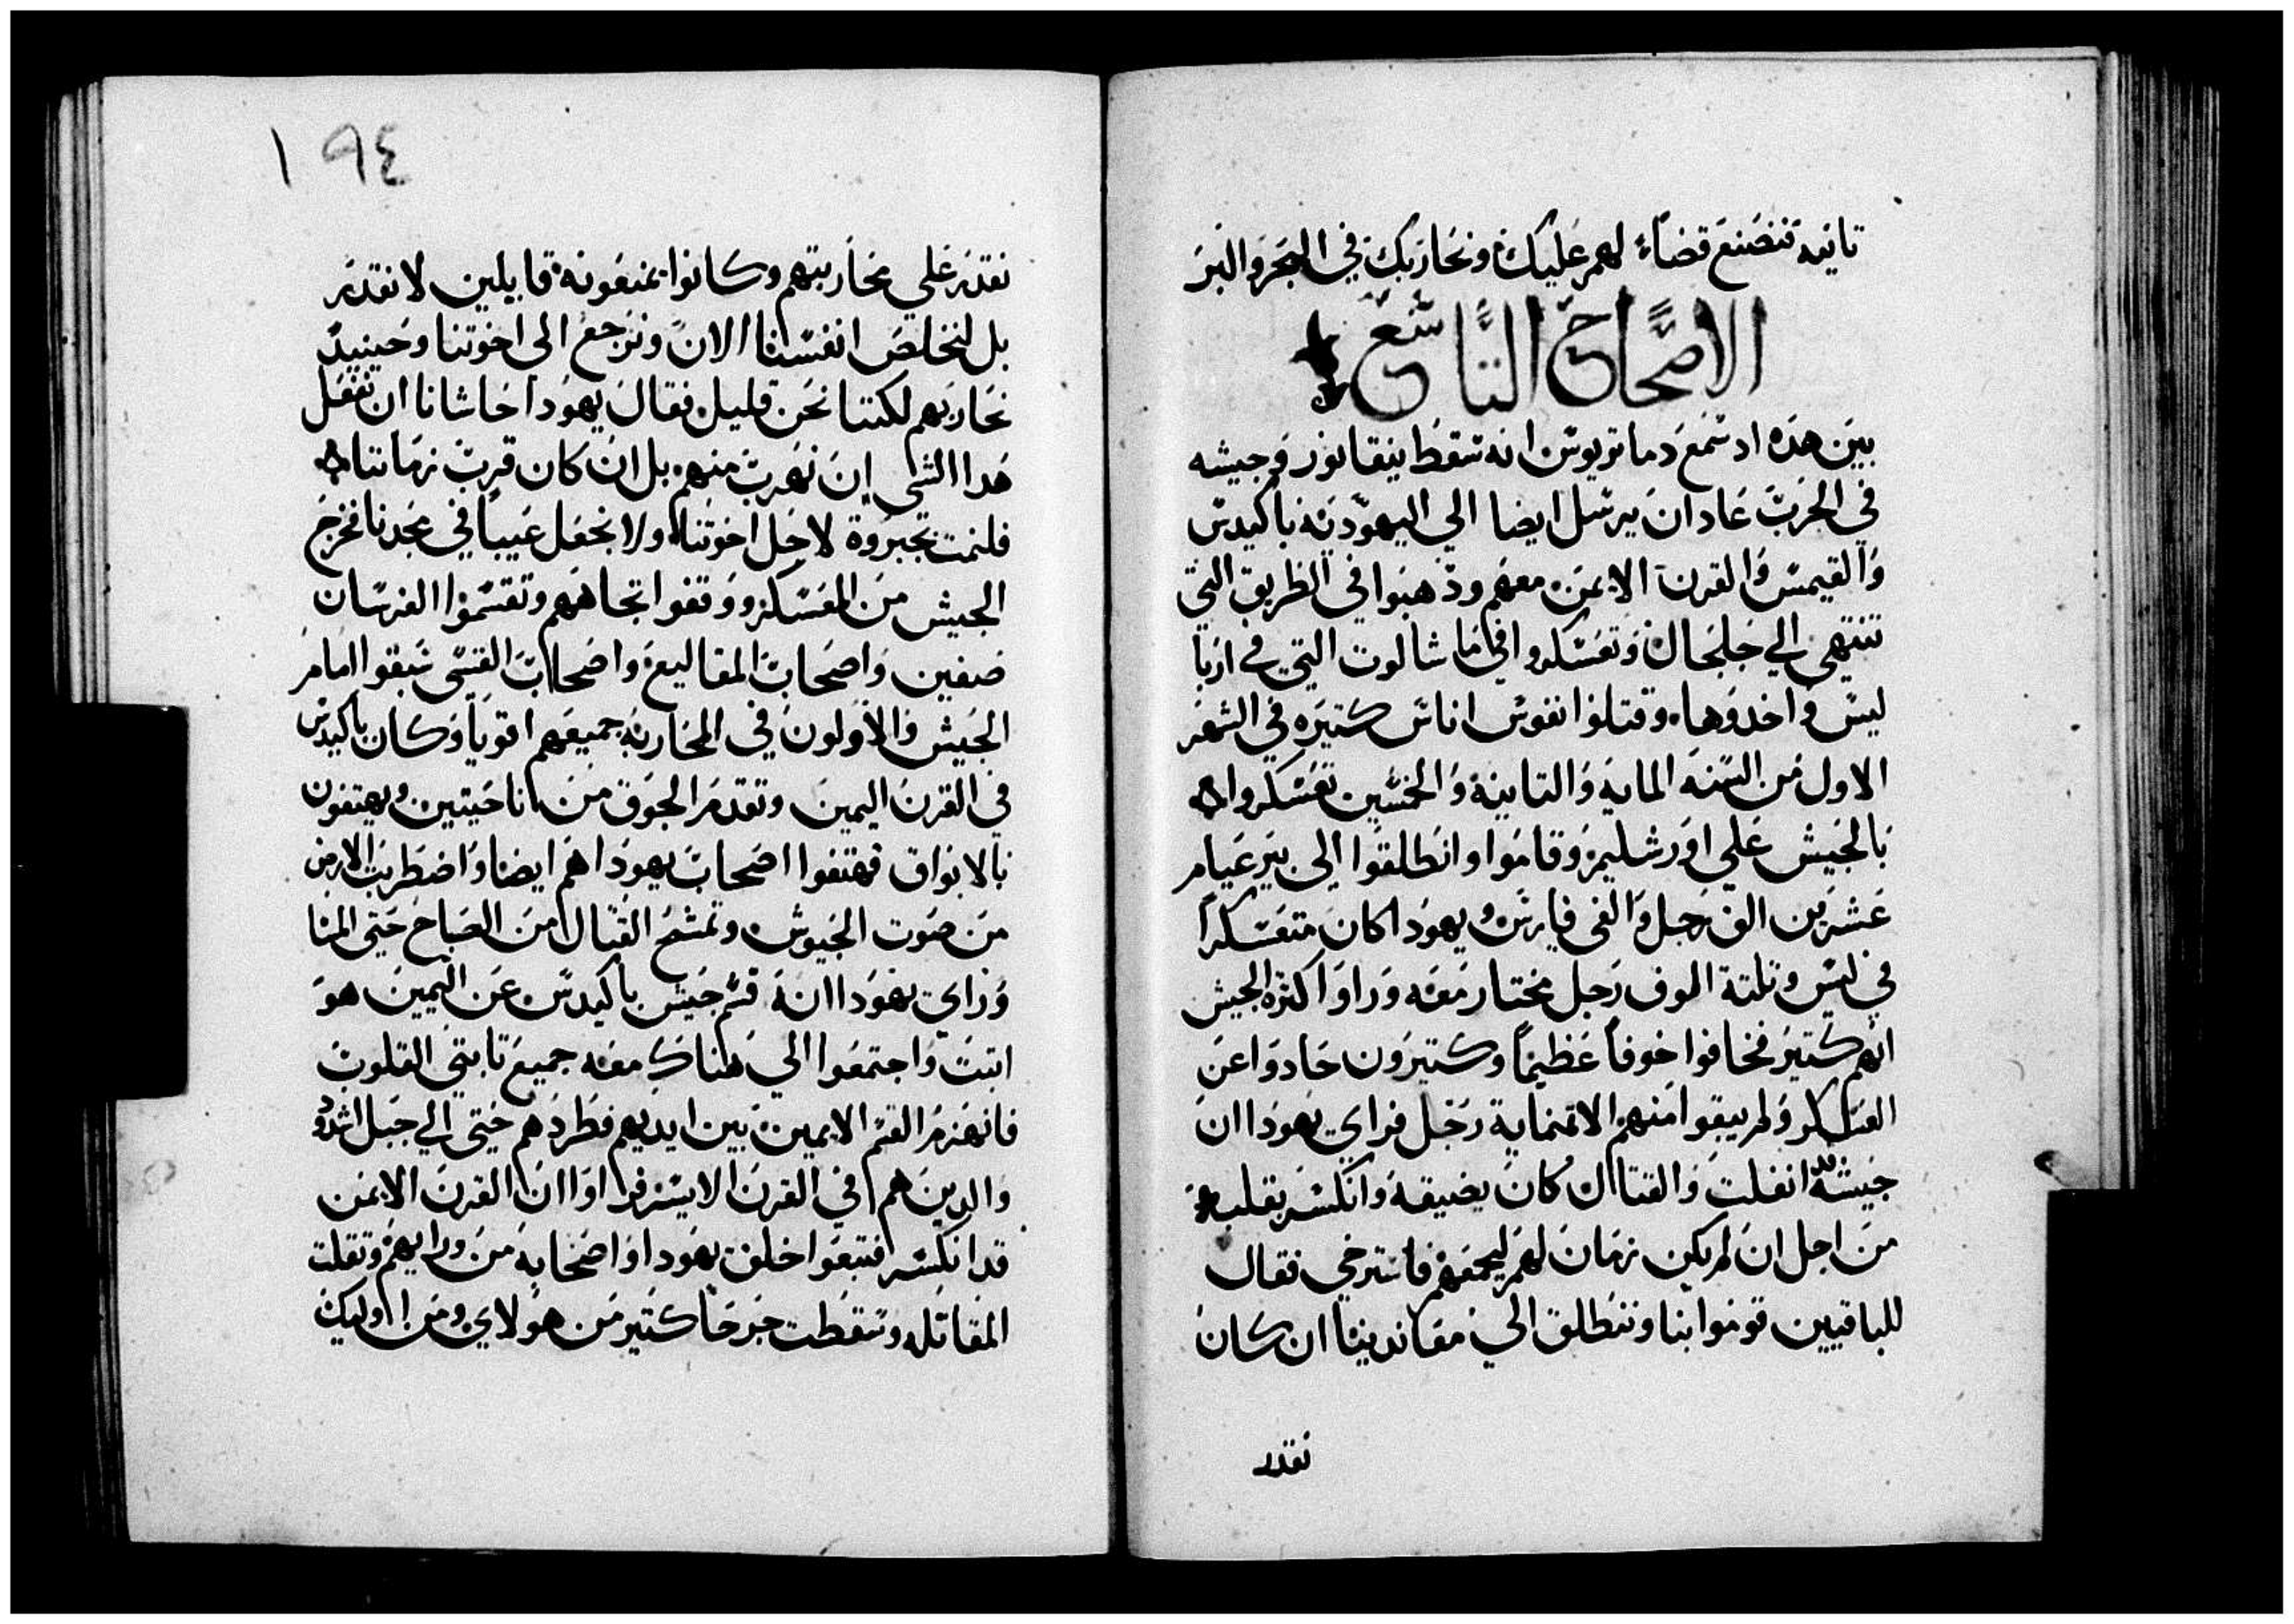 تانيه فنصنع قضاءً لهم عليك ونحاربك في البحر والبر
الاصحاح التاسع
بين هده اد سمع دماتريوس انه سقط ينقانور وجيشه
في الحرب عاد ان يرسل ايضا الي اليهودية باكيدس
والقيمس والقرن الايمن معهم ودهبوا في الطريق التي
تنتهي الي جلجال وتعسكروا في ماشالوت التي في اربا
ليس واخدوها وقتلوا نفوس اناس كتيره في الشهر
الاول من السنه المايه والتانية والخمسين تعسكروا
بالجيش علي اورشليم وقاموا وانطلقوا الي بير عيام
عشرين الف رجل والفي فارس ويهودا كان متعسكراً
في ليس وتلتة الوف رجل مختار معه وراوا كثره الجيش
انهم كتير فخافوا خوفاً عظيماً وكتيرون حادوا عن
العسكر ولم يبقوا منهم الا تمنماية رجل فراي يهودا ان
جيشه قد انفلت والقتال كان يضيقه وانكسر بقلبه
من اجل ان لم يكن زمان لهم ليجمعهم فاسترخي فقال
للباقيين قوموا بنا وننطلق الي مقاندينا ان كان
نقدر
١٩٤
نقدر علي محاربتهم وكانوا يمنعونه قايلين لا نقدر
بل لنخلص انفسنا الان ونرجع الى اخوتنا وحينيدٍ
نحاربهم لكننا نحن قليل فقال يهودا حاشانا ان نفعل
هدا الشي ان نهرب منهم بل ان كان قرب زماننا
فلنمت بجبروة لاجل اخوتنا ولا نجعل عيباً في مجدنا فخرج
الجيش من المعسكر ووقفوا تجاههم وتقسموا الفرسان
صفين واصحاب المقاليع واصحاب القسي سبقوا امام
الجيش والاولون في المحاربه جميعهم اقويا وكان باكيدس
في القرن اليمين وتقدم الجوق من الناحيتين ويهتفون
بالابواق فهتفوا اصحاب يهودا هم ايضا واضطربت الارض
من صوت الجيوش وتمشح القتال من الصباح حتى المسا
وراي يهودا انه قسم جيش باكيدس عن اليمين هو
اتبت واجتمعوا الي هناك معه جميع تابتي القلوب
فانهزم القسم الايمين بين ايديهم فطردهم حتى الي جبل اشدود
والدين هم في القرن الايسر فراوا ان القرن الايمن
قد انكسر فتبعوا خلف يهودا واصحابه من ورايهم وتقلت
المقاتله وسقطت جرحا كتير من هولاي ومن اوليك